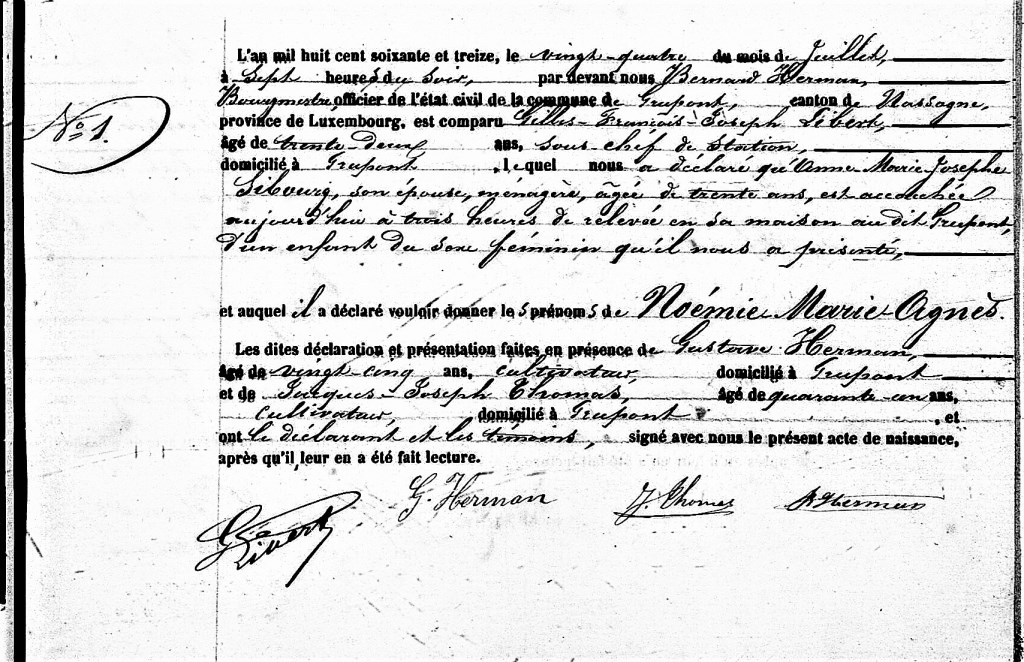 L'an mil huit cent soixante et treize, le vingt-quatre du mois de Juillet,
à Sept heures du soir, par devant nous Bernard Herman,
Bourgmestre, officier de l'état civil de la commune de Grupont, canton de Nassogne,
N° 1.
province de Luxembourg, est comparu Gilles-François-Joseph Libert,
âgé de trente-deux ans, sous-chef de station,
domicilié à Grupont, lequel nous a déclaré qu'Anne Marie Josephe
Sibourg, son épouse, ménagère, âgée de trente ans, est accouchée
aujourd'hui à trois heures de relevée en sa maison au dit Grupont,
d'un enfant du sexe féminin qu'il nous a présenté,
et auquel il a déclaré vouloir donner les prénoms de Noémie Marie Agnès.
Les dites déclaration et présentation faites en présence de Gustave Herman,
âgé de vingt-cinq ans, cultivateur, domicilié à Grupont
et de Jacques-Joseph Thomas, âgé de quarante un ans,
cultivateur, domicilié à Grupont, et
ont le déclarant et les témoins, signé avec nous le présent acte de naissance,
après qu'il leur en a été fait lecture.
G. Herman J. Thomas B Herman
Libert